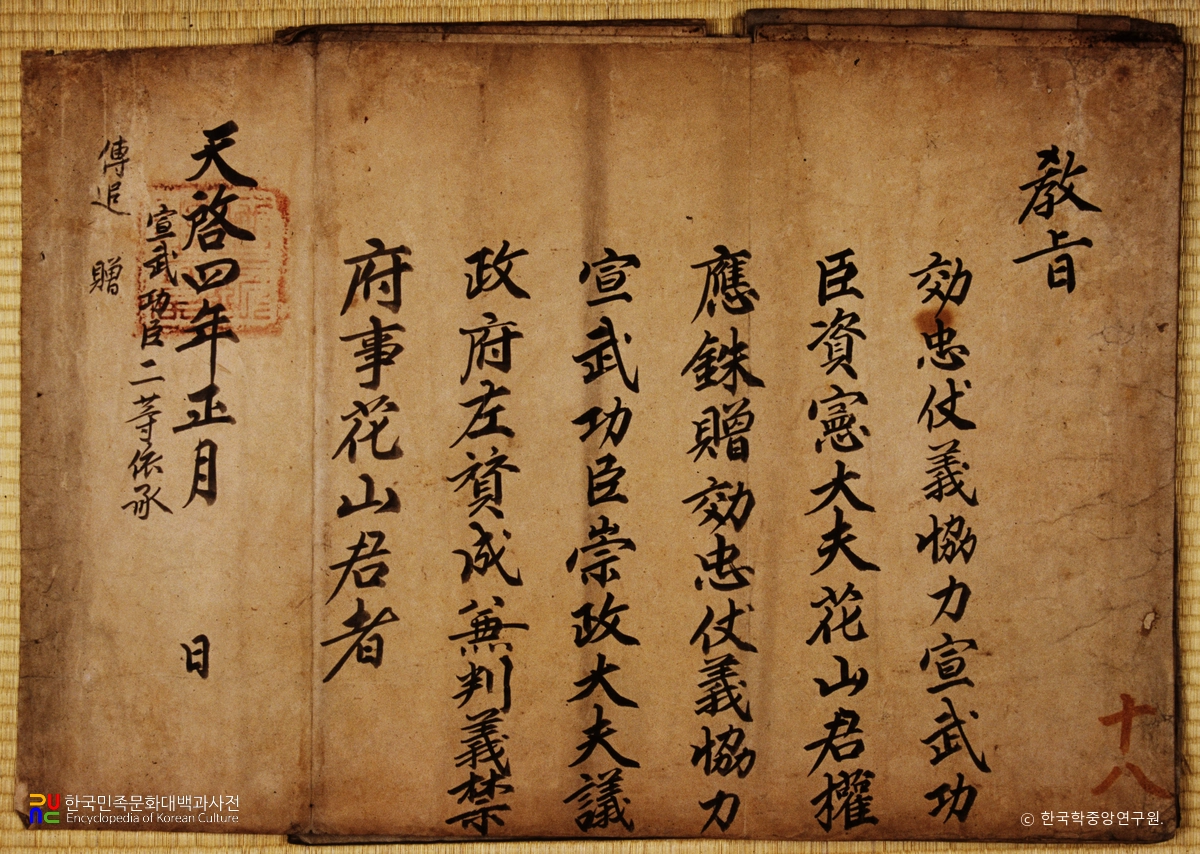 教旨
効忠仗義協力宣武功
臣資憲大夫花山君權
應銖贈効忠仗義協力
宣武功臣崇政大夫議
政府左賛成兼判義禁
府事花山君者
天啓四年正月 日
宣武功臣二等依承
傳追 贈
十八
한국민족문화대백과사전
Encyclopedia of Korean Culture
© 한국학중앙연구원.